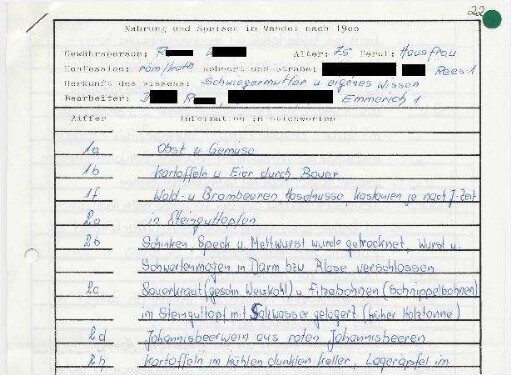 22
Nahrung und Speisen im Wandel nach 1900
Gewährsperson: R Alter: 75 Beruf: Hausfrau
Konfession: röm/kath Wohnort und Straße: Rees 1
Herkunft des Wissens: Schwiegermutter u eigenes Wissen
Bearbeiter: R Emmerich 1
Ziffer Information in Stichworten
1a Obst u Gemüse
1b Kartoffeln u Eier durch Bauer
1f Wald- u Brombeeren Haselnüsse, Kastanien je nach J-Zeit
2a in Steinguttöpfen
2b Schinken, Speck u. Mettwurst wurde getrocknet, Wurst u.
Schwartenmagen in Darm bzw Blase verschlossen
2c Sauerkraut (geschn Weißkohl) u Fitzebohnen (Schnippelbohnen)
im Steinguttopf mit Salzwasser gelagert (früher Holztonne)
2d Johannisbeerwein aus roten Johannisbeeren
2h Kartoffeln im kühlen dunklen Keller, Lageräpfel im